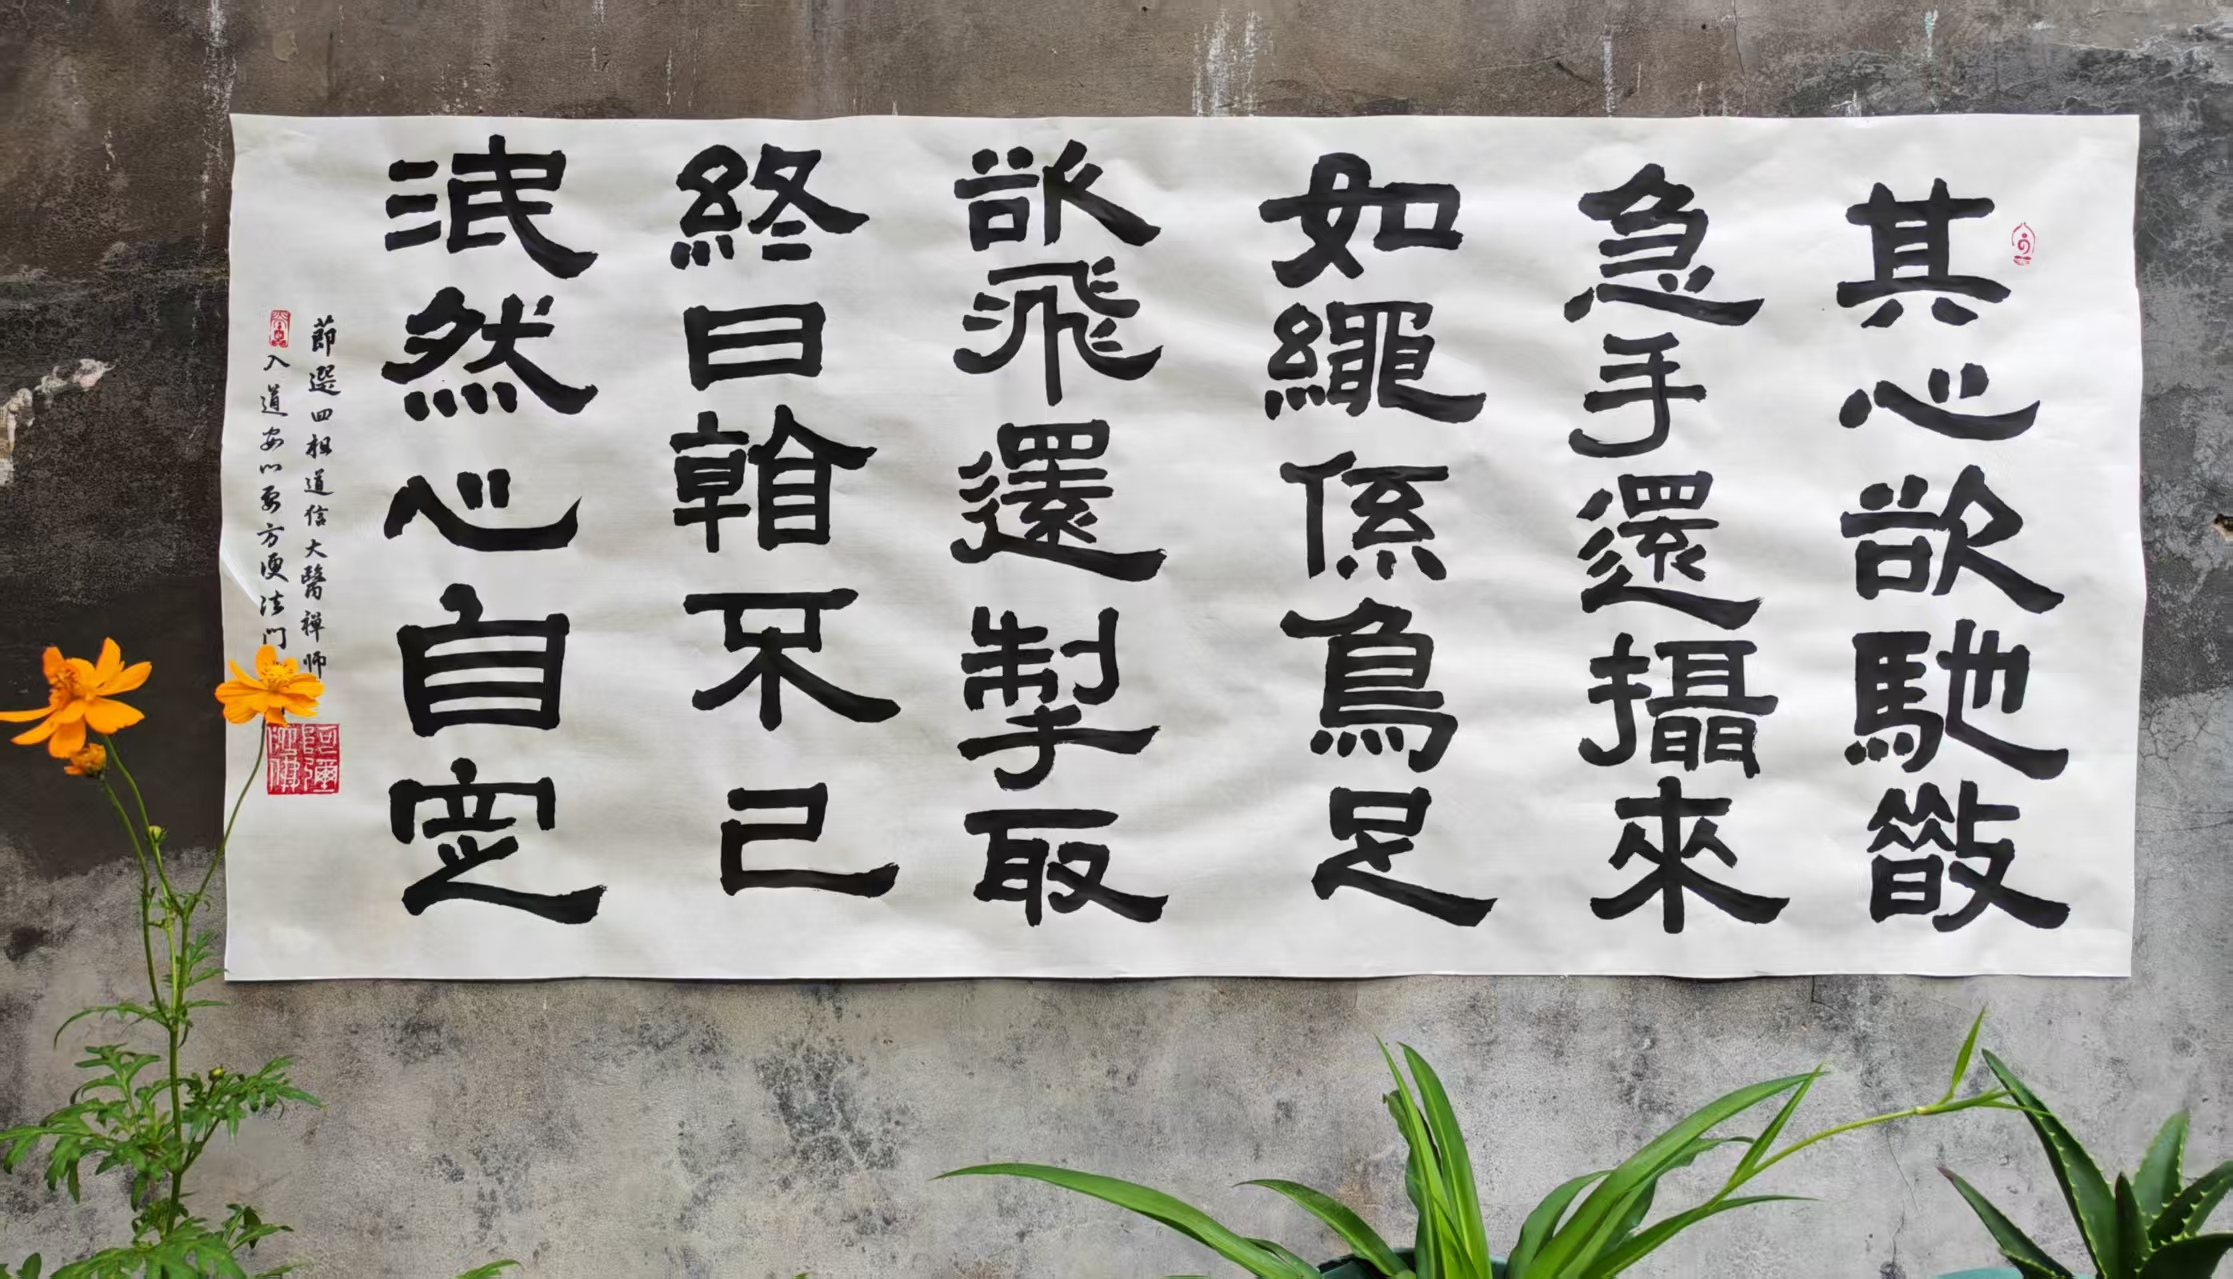 其心欲馳散
急手還攝來
如繩係鳥足
欲飛還掣取
終日看不已
泯然心自定
節選四祖道信大醫禪师
入道安心要方便法門
阿彌陀佛